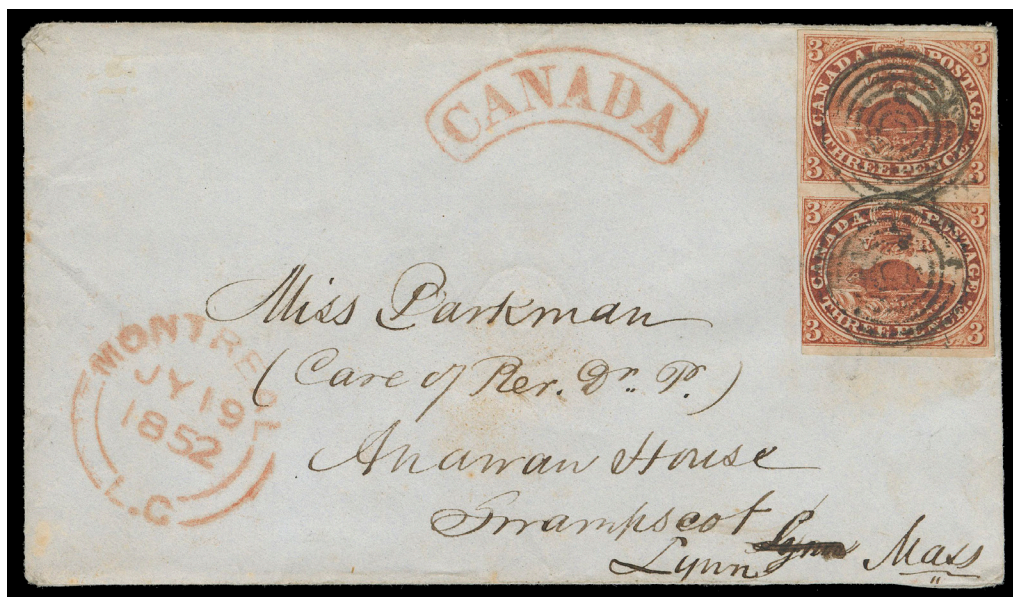 CANADA
3 3
CANADA POSTAGE
THREE PENCE
3 3
3 3
CANADA POSTAGE
THREE PENCE
3 3
MONTREAL
JY 19
1852
L.C
Miss Parkman
(Care of Rev. Dr. P.)
Anawan House
Swampscot Lynn
Lynn Mass